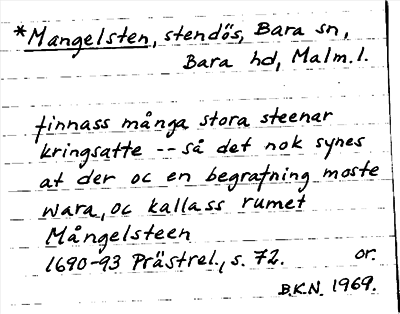 *Mangelsten, stendös, Bara sn,
Bara hd, Malm.l.
finnass många stora steenar
kringsatte -- så det nok synes
at der oc en begrafning moste
wara, oc kallass rumet
Mångelsteen
1690-93 Prästrel., s. 72. or.
B.K.N. 1969.